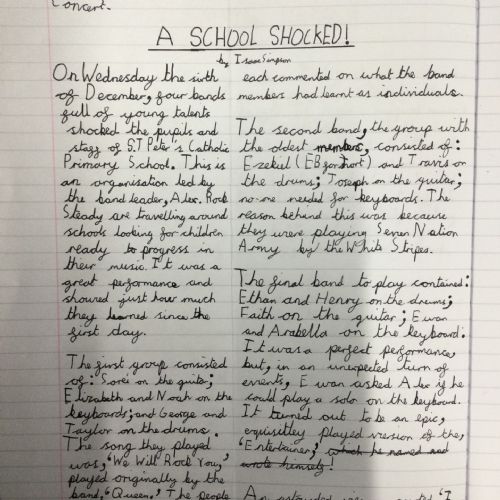 Concert.
A SCHOOL SHOCKED!
by Isaac Simpson
On Wednesday the sixth
of December, four bands
full of young talents
shocked the pupils and
staff of S.T Peter's Catholic
Primary School. This is
an organisation led by
the band leader, Alex. Rock
Steady are travelling around
schools looking for children
ready to progress in
their music. It was a
great performance and
showed just how much
they learned since the
first day.
The first group consisted
of: Sorei on the guitar;
Elizabeth and Noah on the
keyboards; and George and
Taylor on the drums.
The song they played
was, 'We Will Rock You,'
played originally by the
band, 'Queen.' The people
each commented on what the band
members had learnt as individuals.
The second band, the group with
the oldest members, consisted of:
Ezekiel (EB for short) and Travis on
the drums; Joseph on the guitar;
no-one needed for keyboards. The
reason behind this was because
they were playing Seven Nation
Army by the White Stripes.
The final band to play contained:
Ethan and Henry on the drums;
Faith on the guitar; Ewan
and Arabella on the keyboard.
It was a perfect performance,
but, in an unexpected turn of
events, Ewan asked Alex if he
could play a solo on the keyboard.
It turned out to be an epic,
equisitley played version of the,
'Entertainer,' which he named and
wrote himself!